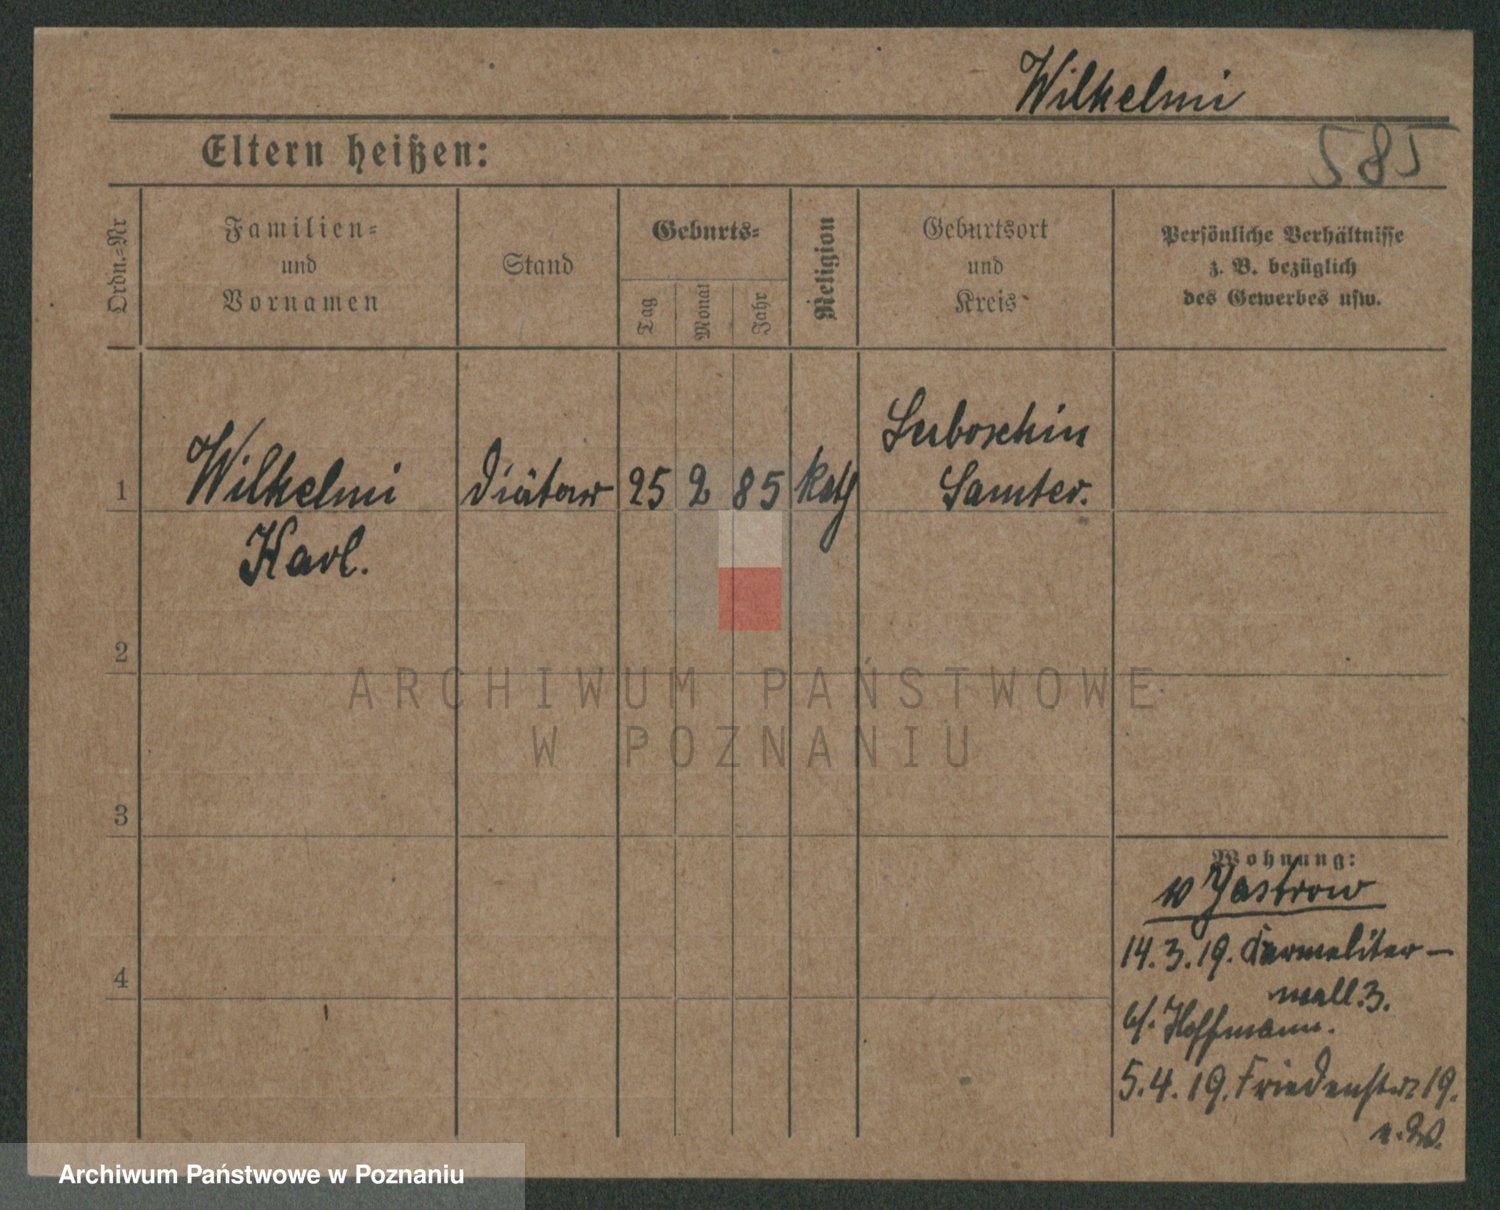 Wilhelmi
Eltern heißen:
585
Ordn.=Nr
Familien=
und
Vornamen
Stand
Geburts=
Tag
Monat
Jahr
Religion
Geburtsort
und
Kreis
Persönliche Verhältnisse
z. B. bezüglich
des Gewerbes usw.
1
Wilhelmi
Karl.
Diätar
25
2
85
Kath
Serboschin
Samter.
2
3
4
Wohnung:
v Jastrow
14.3.19. Karmeliter–
wall 3.
b/. Hoffmann.
5.4.19. Friedenstr. 19.
ARCHIWUM PAŃSTWOWE
W POZNANIU
Archiwum Państwowe w Poznaniu